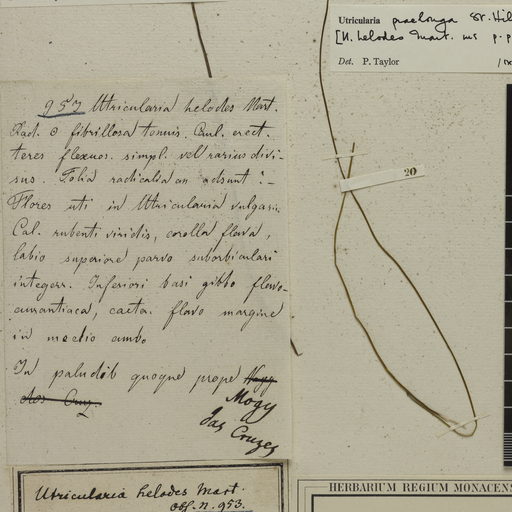 Utricularia praelonga St. Hil
[U. helodes Mart. ms p.p
Det. P. Taylor
20
953 Utricularia helodes Mart.
Rad. fibrillosa tenuis. Caul. erect.
teres flexuos. simpl. vel rarius divi-
sus. Folia radicalia an adsunt?-
Flores uti in Utricularia vulgari.
Cal. rubenti viridis, corolla flava,
labio superiore parvo suborbiculari
integerr. Inferiori basi gibbo flavo-
aurantiaca, caeta. flavo margine
in medio
In paludib quoque prope
Mogy
das Cruzes
Utricularia helodes Mart.
Obs. n. 953.
HERBARIUM REGIUM MONACENS